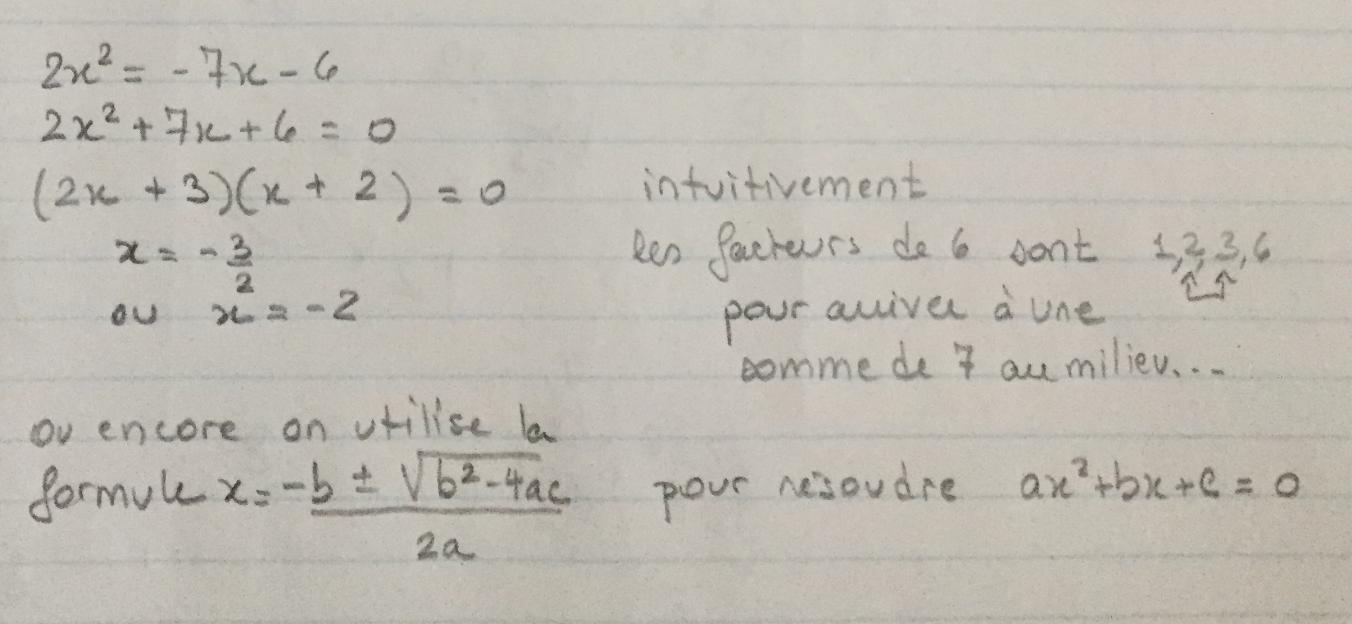 2x² = -7x - 6
2x² + 7x + 6 = 0
(2x + 3)(x + 2) = 0 intuitivement
x = -3/2 les facteurs de 6 sont 1,2,3,6
ou x = -2 pour arriver à une
somme de 7 au milieu...
ou encore on utilise la
formule x = -b ± √b²-4ac / 2a pour résoudre ax²+bx+c = 0